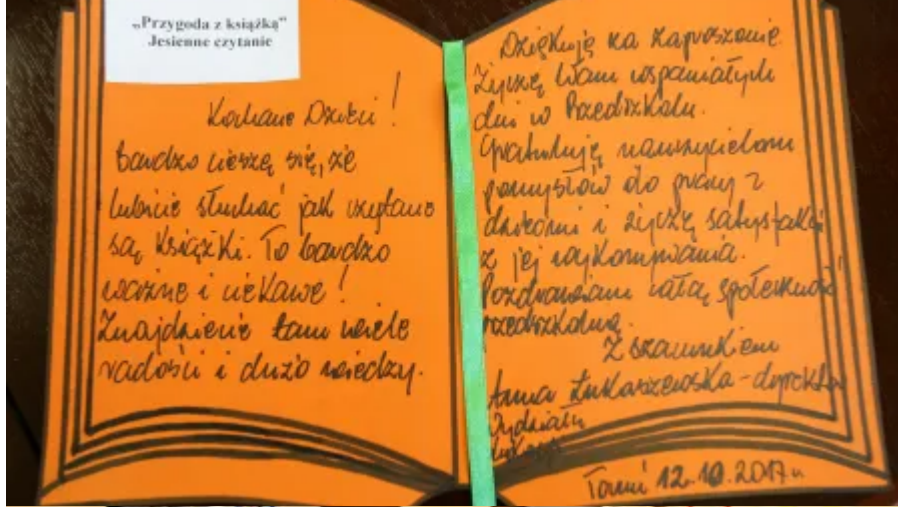 „Przygoda z książką”
Jesienne czytanie
Kochane Dzieci!
bardzo cieszę się, że
lubicie słuchać jak czytane
są książki. To bardzo
ważne i ciekawe!
Znajdziecie tam wiele
radości i dużo wiedzy.
Dziękuję za zaproszenie.
Życzę Wam wspaniałych
dni w Przedszkolu.
Gratuluję nauczycielom
pomysłów do pracy z
dziećmi i życzę satysfakcji
z jej wykonywania.
Pozdrawiam całą społeczność
przedszkolną.
Z szacunkiem
Anna Łukaszewska - dyrektor
Wydziału
Edukacji
Toruń 12.10.2017 r.